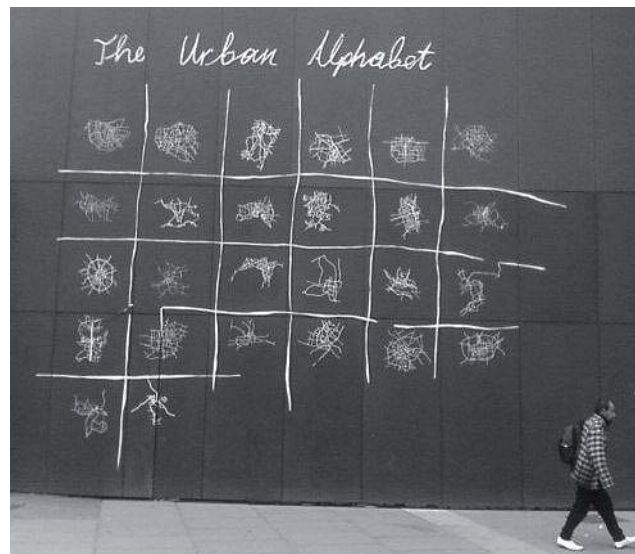 The Urban Alphabet